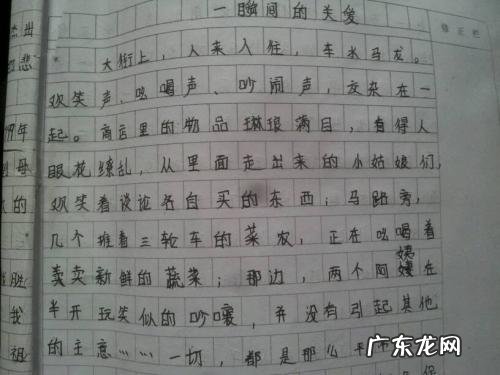 一瞬间的关爱
修正栏
大街上，人来人往，车水马龙。
欢笑声、吆喝声、吵闹声，交杂在一
起。商店里的物品琳琅满目，看得人
眼花缭乱，从里面走出来的小姑娘们，
欢笑着谈论各自买的东西；马路旁，
几个推着三轮车的菜农，正在吆喝着
卖卖新鲜的蔬菜；那边，两个阿姨在
半开玩笑似的吵嚷，并没有引起其他
的主意……一切，都是那么平
广东龙网